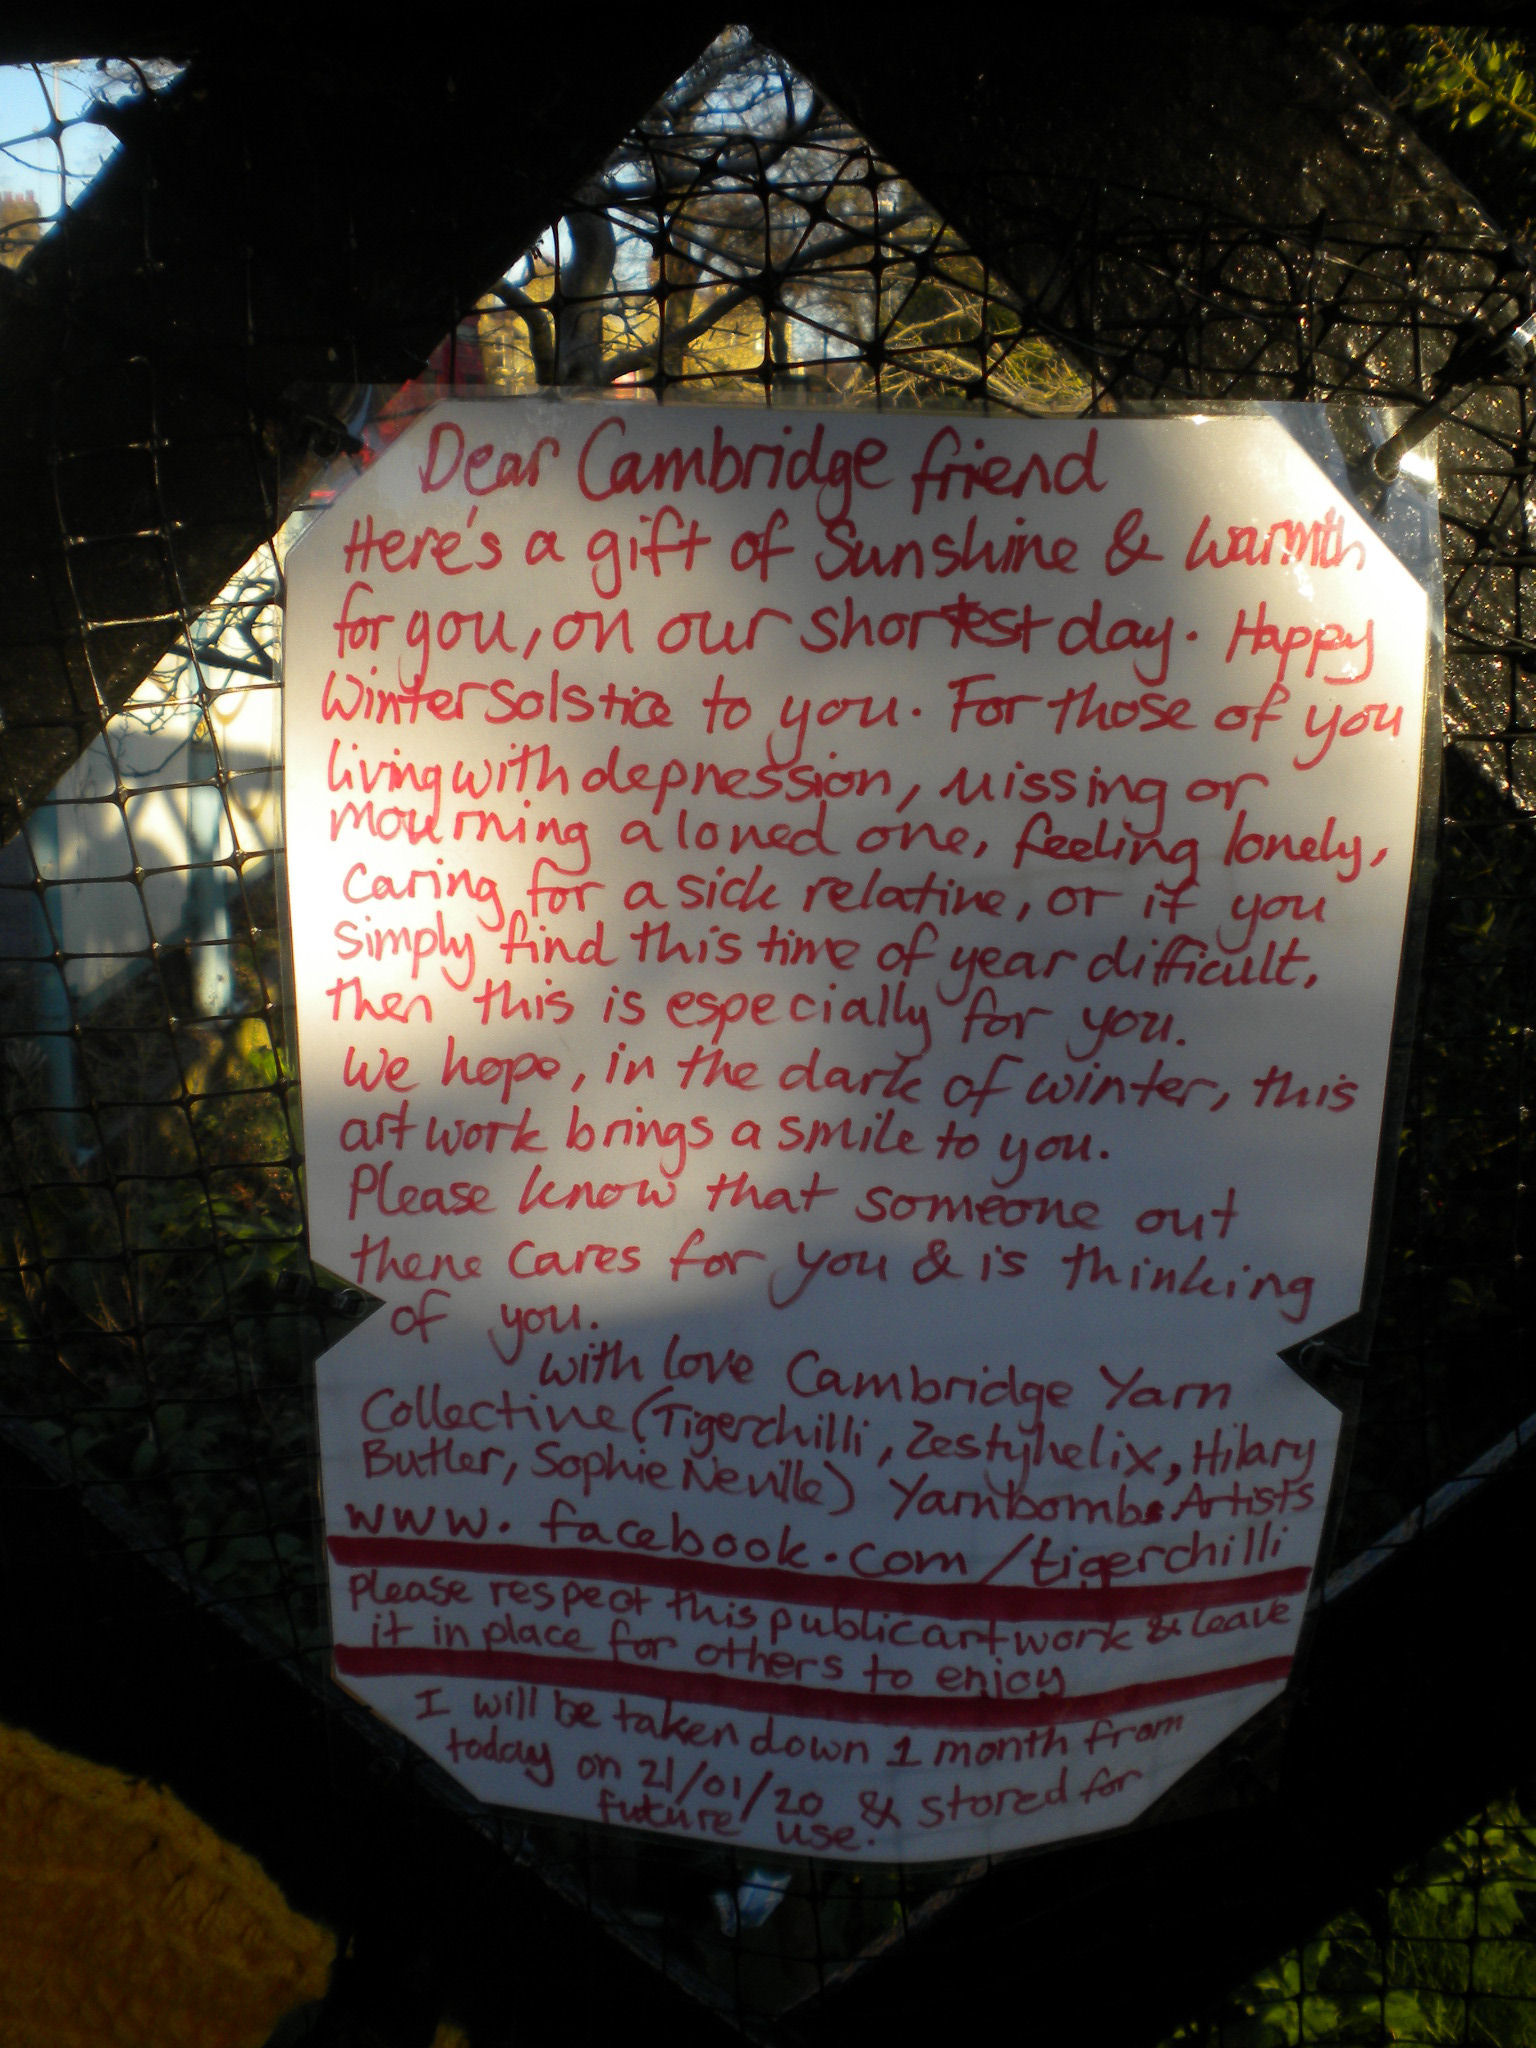 Dear Cambridge friend
Here's a gift of Sunshine & Warmth
for you, on our shortest day. Happy
Winter Solstice to you. For those of you
living with depression, missing or
mourning a loved one, feeling lonely,
caring for a sick relative, or if you
simply find this time of year difficult,
then this is especially for you.
We hope, in the dark of winter, this
art work brings a smile to you.
Please know that someone out
there cares for you & is thinking
of you.
with love Cambridge Yarn
Collective (Tigerchilli, Zestyhelix, Hilary
Butler, Sophie Neville) Yarnbombs Artists
www.facebook.com/tigerchilli
please respect this public art work & leave
it in place for others to enjoy
I will be taken down 1 month from
today on 21/01/20 & stored for
future use.